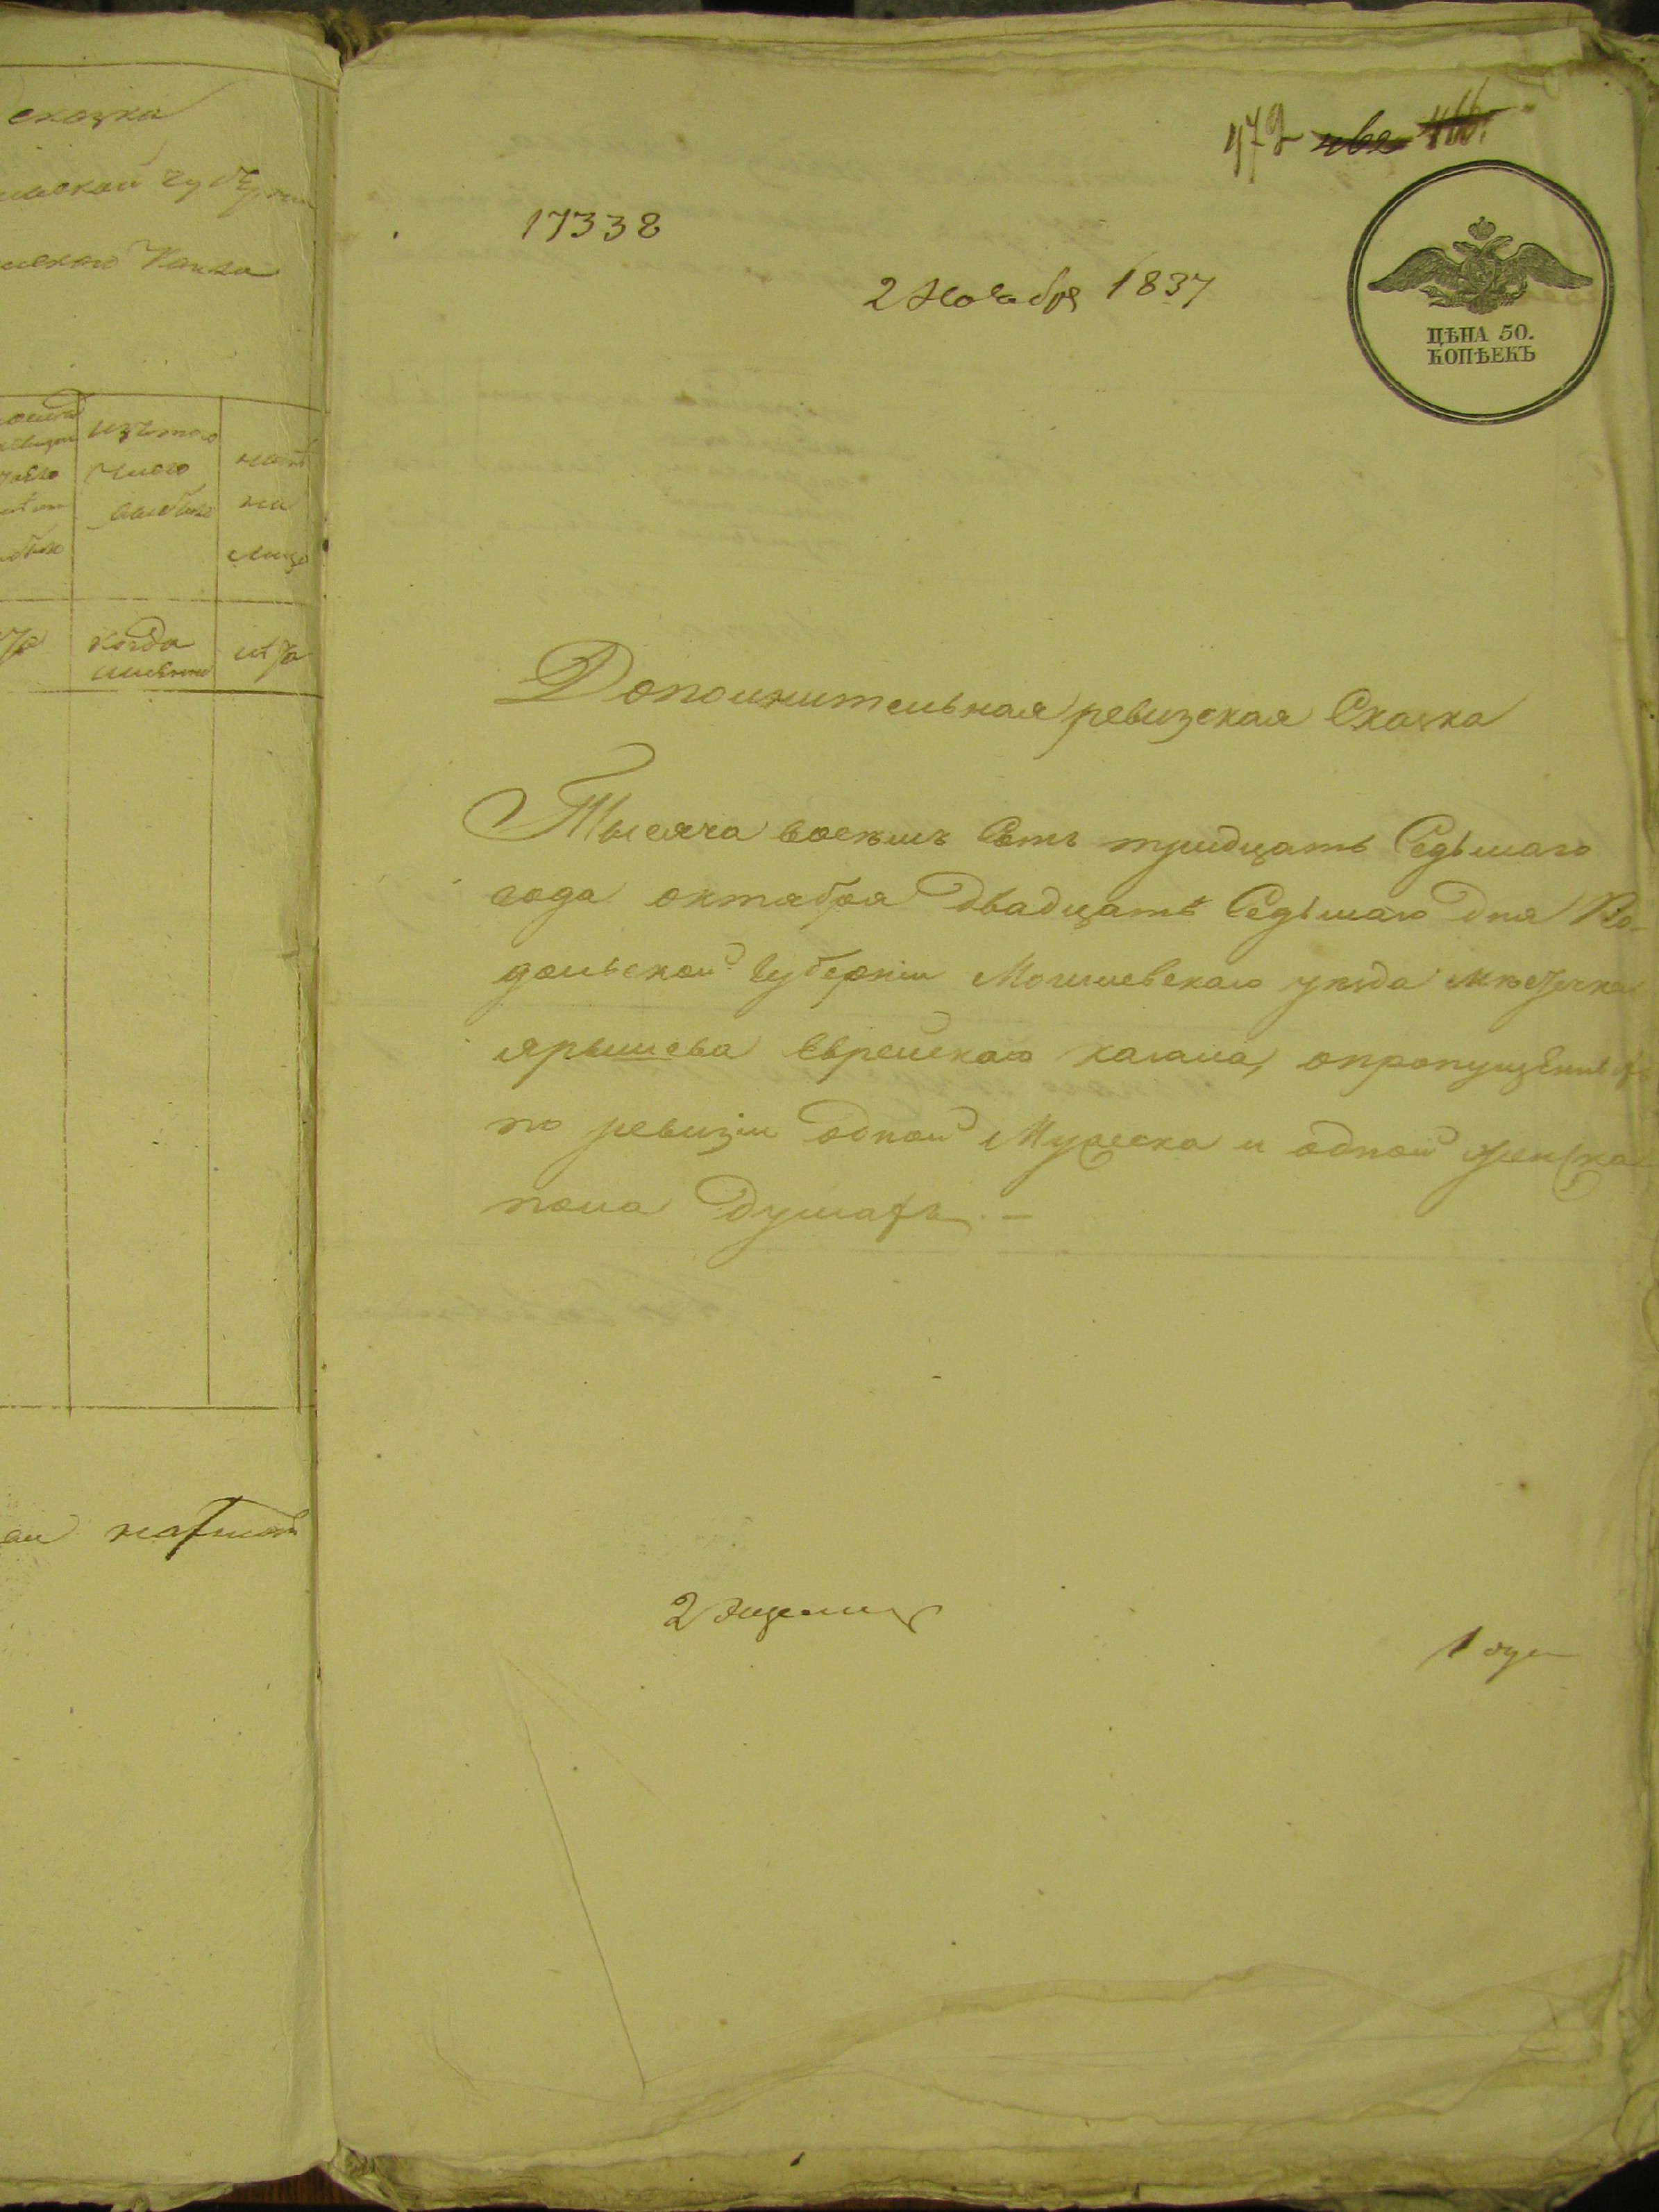 сказка
изъ того
числа
выбыло
на
лицо
когда
имянно
472
17338
2 Ноября 1837
ЦѢНА 50.
КОПѢЕКЪ
Дополнительная ревизская Сказка
Тысяча восемь Сотъ тридцать Седьмаго
года октября двадцать Седьмаго дня По-
дольской Губерніи Могилевскаго уѣзда мѣстечка
Ярышева Еврейскаго кагала, опропущенныхъ
по ревизіи одной Мужеска и одной женска
пола душахъ. –